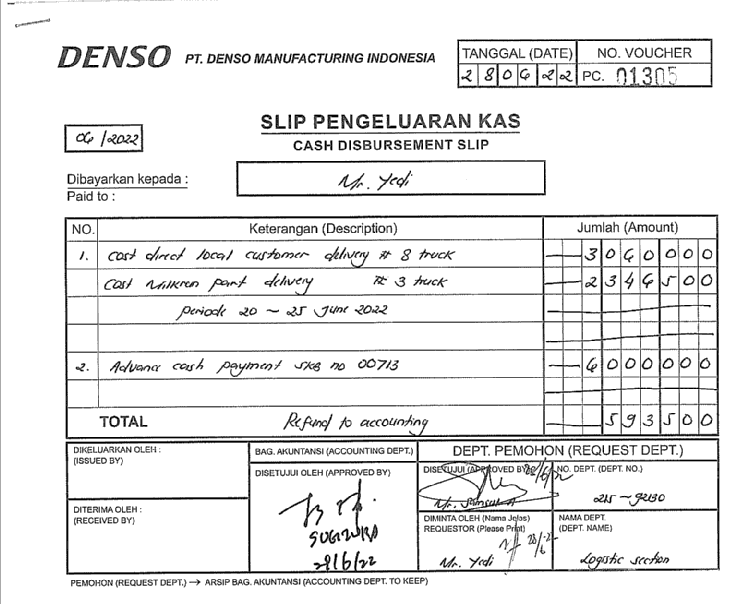 DENSO PT. DENSO MANUFACTURING INDONESIA
TANGGAL (DATE) NO. VOUCHER
280622 PC. 01305
SLIP PENGELUARAN KAS
06/2022
CASH DISBURSEMENT SLIP
Dibayarkan kepada :
Paid to :
Mr. Yedi
NO. Keterangan (Description) Jumlah (Amount)
1. Cost direct local customer delivery # 8 truck 3060000
Cost Milkrun part delivery # 3 truck 2346500
Periode 20 ~ 25 June 2022
2. Advance cash payment SKB no 00713 6000000
TOTAL Refund to accounting 593500
DIKELUARKAN OLEH :
(ISSUED BY)
BAG. AKUNTANSI (ACCOUNTING DEPT.)
DEPT. PEMOHON (REQUEST DEPT.)
DISETUJUI OLEH (APPROVED BY)
SUGIURA
28/6/22
DISETUJUI (APPROVED BY)
NO. DEPT. (DEPT. NO.)
DITERIMA OLEH :
(RECEIVED BY)
DIMINTA OLEH (Nama Jelas)
REQUESTOR (Please Print)
Mr. Yedi
NAMA DEPT.
(DEPT. NAME)
Logistic section
PEMOHON (REQUEST DEPT.) → ARSIP BAG. AKUNTANSI (ACCOUNTING DEPT. TO KEEP)